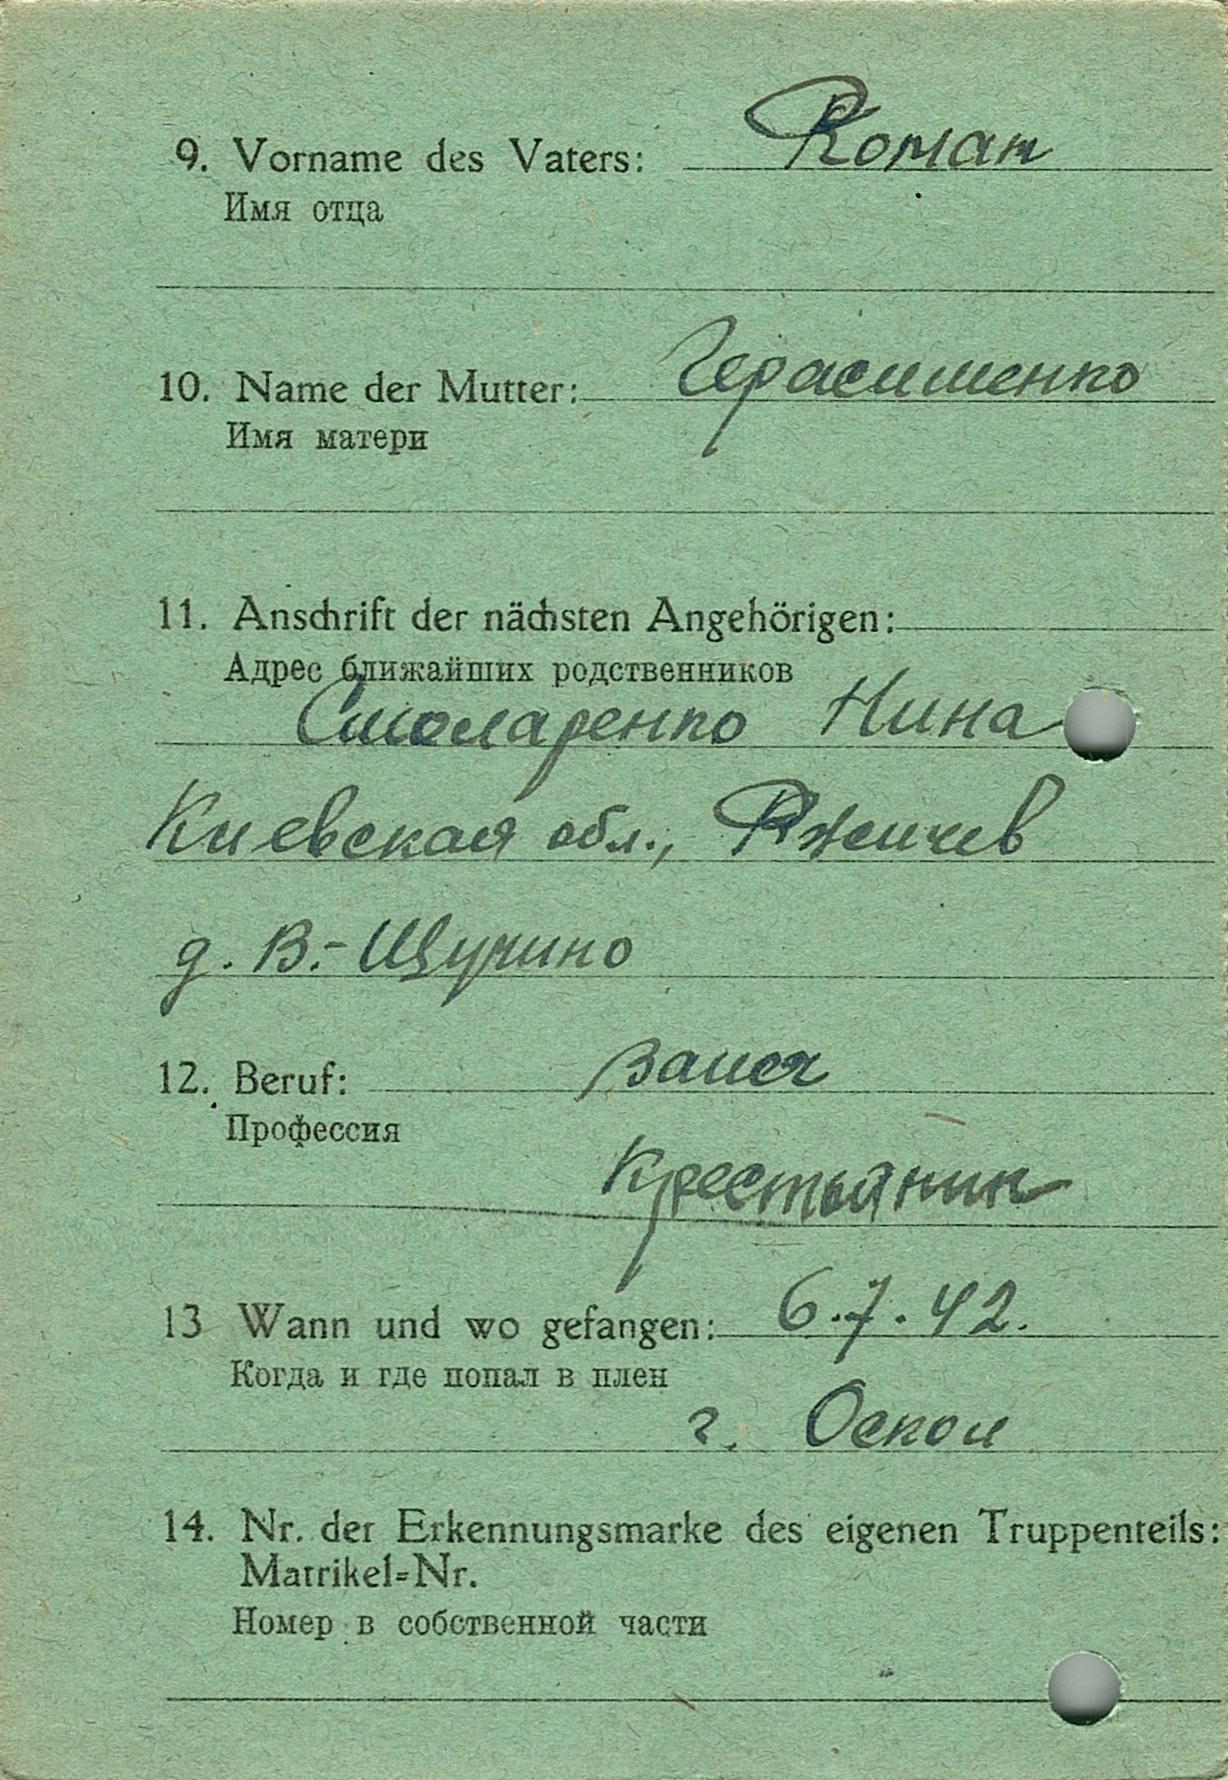 9. Vorname des Vaters: Роман
Имя отца
10. Name der Mutter: Герасименко
Имя матери
11. Anschrift der nächsten Angehörigen:
Адрес ближайших родственников
Смоларенко Нина
Киевская обл., Ржичев
д. В.-Щучино
12. Beruf: Бауер
Профессия
Крестьянин
13 Wann und wo gefangen: 6.7.42.
Когда и где попал в плен
г. Оскол
14. Nr. der Erkennungsmarke des eigenen Truppenteils:
Matrikel=Nr.
Номер в собственной части